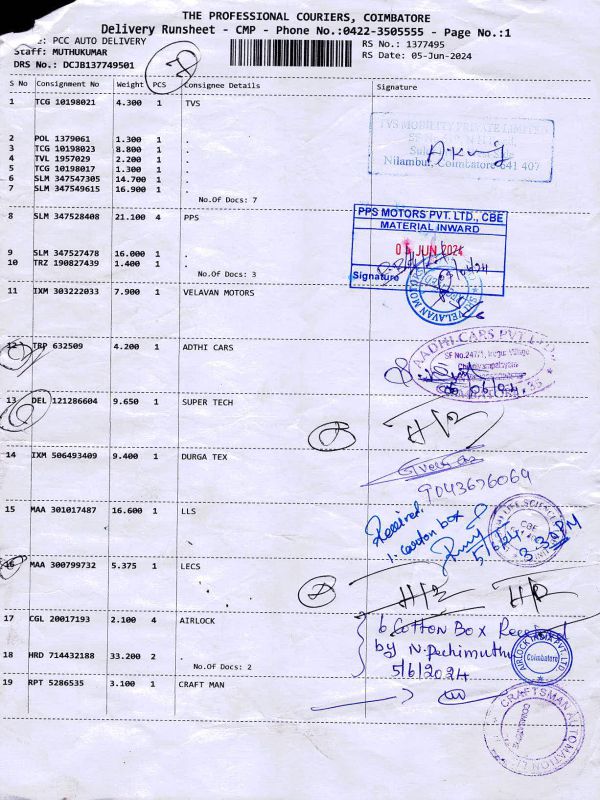 THE PROFESSIONAL COURIERS, COIMBATORE
Delivery Runsheet - CMP - Phone No.:0422-3505555 - Page No.:1
: PCC AUTO DELIVERY
Staff: MUTHUKUMAR
DRS No.: DCJB137749501
RS No.: 1377495
RS Date: 05-Jun-2024
S No Consignment No Weight PCS Consignee Details Signature
1 TCG 10198021 4.300 1 TVS
2 POL 1379061 1.300 1 .
3 TCG 10198023 8.800 1 .
4 TVL 1957029 2.200 1 .
5 TCG 10198017 1.300 1 .
6 SLM 347547305 14.700 1 .
7 SLM 347549615 16.900 1 .
No.Of Docs: 7
TVS MOBILITY PRIVATE LIMITED
Nilambur, Coimbatore 641 407
8 SLM 347528408 21.100 4 PPS
9 SLM 347527478 16.000 1 .
10 TRZ 190827439 1.400 1 .
No.Of Docs: 3
PPS MOTORS PVT. LTD., CBE
MATERIAL INWARD
JUN 2024
Signature
11 IXM 303222033 7.900 1 VELAVAN MOTORS
SRI VELAVAN MOTORS
12 TRP 632509 4.200 1 ADTHI CARS
AADHI CARS PVT. LTD.
SF No.247/1, Irugur Village
13 DEL 121286604 9.650 1 SUPER TECH
14 IXM 506493409 9.400 1 DURGA TEX
9043676069
15 MAA 301017487 16.600 1 LLS
Received
1. carton box
5/6/24
3.30PM
CBE
16 MAA 300799732 5.375 1 LECS
17 CGL 20017193 2.100 4 AIRLOCK
18 HRD 714432188 33.200 2 .
No.Of Docs: 2
6 Cotton Box Received
by N. Pechimuthu
5/6/2024
AIRLOCK INDIA PVT. LTD
Coimbatore
19 RPT 5286535 3.100 1 CRAFT MAN
CRAFTSMAN AUTOMATION